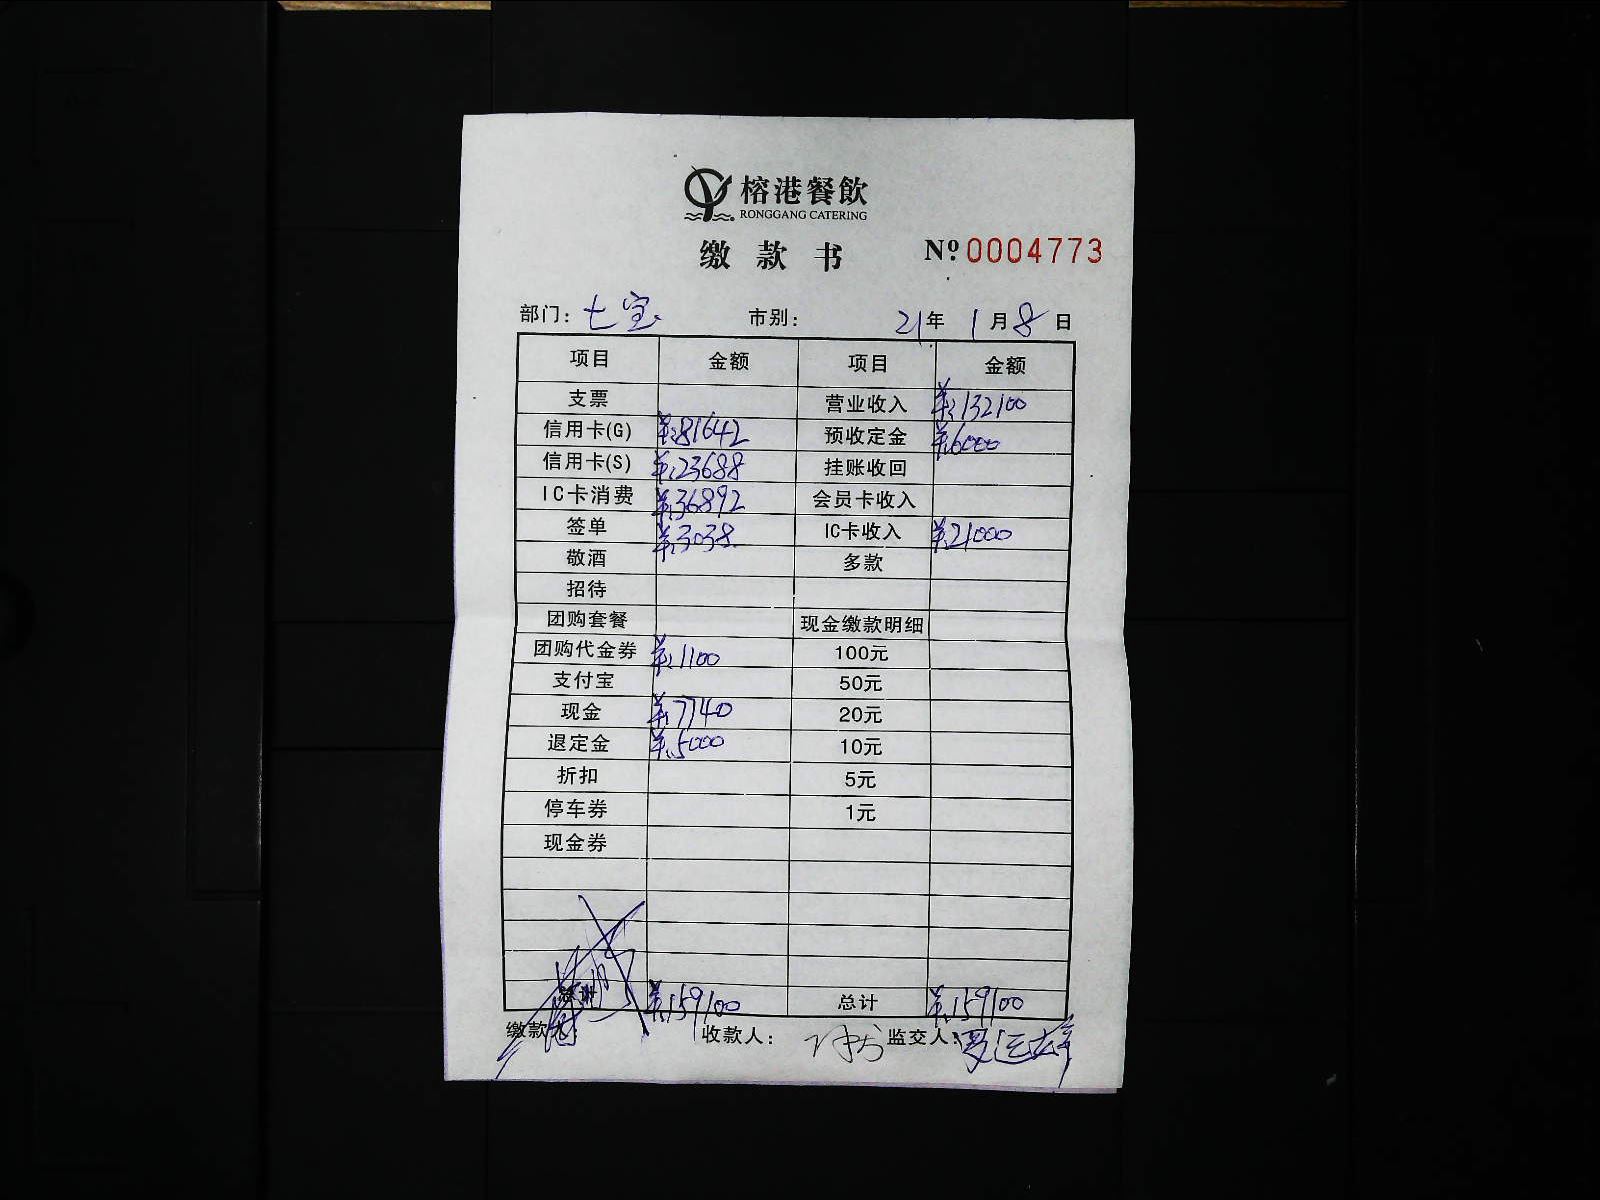 榕港餐飲
RONGGANG CATERING
缴款书 Nº 0004773
部门: 七宝 市别: 21年 1月 8日
项目 金额 项目 金额
支票 营业收入 ¥132100
信用卡(G) ¥81642 预收定金 ¥6000
信用卡(S) ¥23688 挂账收回
IC卡消费 ¥36892 会员卡收入
签单 ¥3038 IC卡收入 ¥21000
敬酒 多款
招待
团购套餐 现金缴款明细
团购代金券 ¥1100 100元
支付宝 50元
现金 ¥7740 20元
退定金 ¥5000 10元
折扣 5元
停车券 1元
现金券
总计 ¥159100 总计 ¥159100
缴款人: 收款人: 监交人: